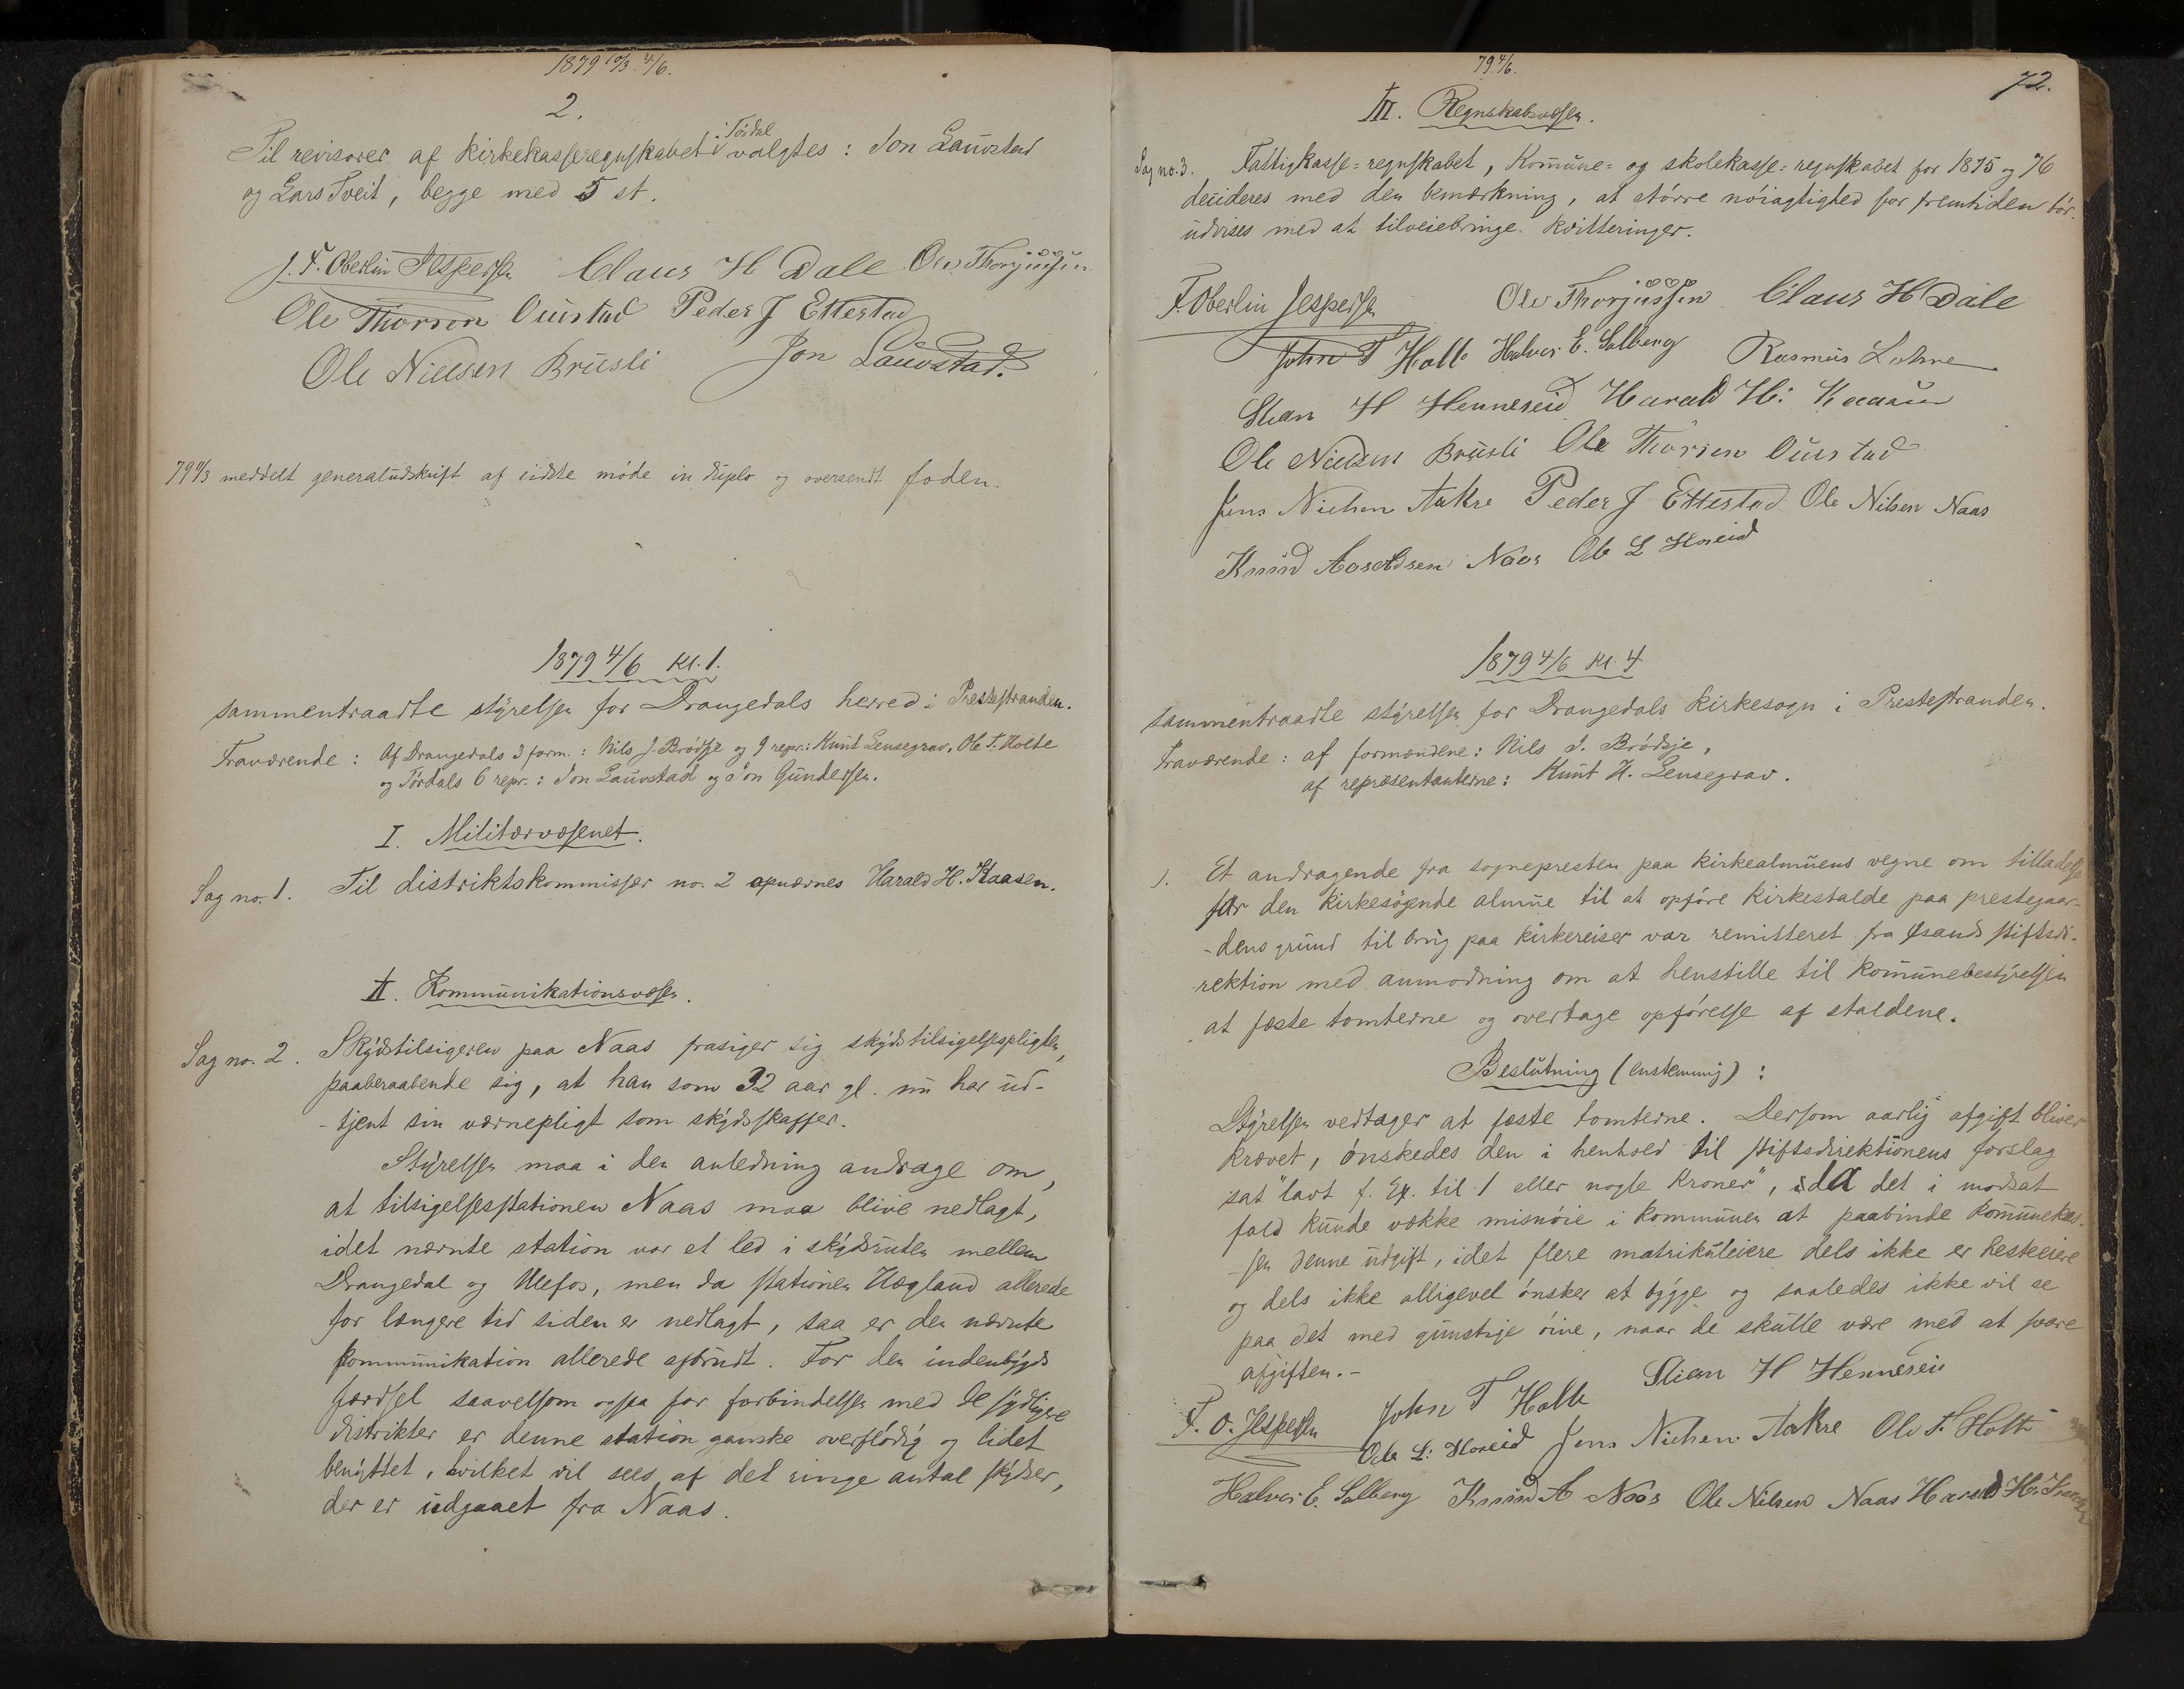 1879 10/3. 4/6.
2.
Til revisorer af kirkekasseregnskabet i Tørdal valgtes: Jon Lauvstad
og Lars Tveit, begge med 5 st.
J. F. Oberlin Jespersen Claus H Dale Ole Thorjussen
Ole Thorsen Ouistad Peder J Ettestad
Ole Nielsen Brusli Jon Lauvstad.
79 meddelt generaludskrift af sidste møde in duplo og oversendt foden.
1879 4/6 Kl. 1.
sammentraadte styrelsen for Drangedals herred i Prestestranden.
Fraværende: Af Drangedals 3 form.: Nils J. Brødsje og 9 repr.: Knut Lensegrav, Ole T. Holte
og Tørdals 6 repr.: Jon Lauvstad og Jon Gundersen.
I. Militærvæsenet.
Sag no. 1. Til distriktskommissær no. 2 opnævnes Harald H. Kaasen.
II. Kommunikationsvæsen.
Sag no. 2. Skydstilsigeren paa Naas frasiger sig skydstilsigelsespligten,
paaberaabende sig, at han som 32 aar gl. nu har ud-
-tjent sin værnepligt som skydsskaffer.
Styrelsen maa i den anledning andrage om,
at tilsigelsesstationen Naas maa blive nedlagt,
idet nævnte station var et led i skydsruten mellem
Drangedal og Ulefos, men da stationen Hægland allerede
for længere tid siden er nedlagt, saa er den nævnte
kommunikation allerede afbrudt. For den indenbygds
færdsel saavelsom ogsaa for forbindelsen med de sydligere
distrikter er denne station ganske overflødig og lidet
benyttet, hvilket vil sees af det ringe antal skydser,
der er udgaaet fra Naas.
79 4/6.
72.
III. Regnskabsvæsen.
Sag no. 3. Fattigkasse-regnskabet, Kommune- og skolekasse-regnskabet for 1875 og 76
decideres med den bemærkning, at større nøiagtighed for fremtiden bør
udvises med at tilveiebringe kvitteringer.
F. Oberlin Jespersen Ole Thorjussen Claus H Dale
John T Holte Halvor E. Solberg Rasmus Lohne
Stian H Henneseid Harald H. Kaasen
Ole Nielsen Brusli Ole Thorsen Ouistad
Jens Nielsen Aakre Peder J Ettestad Ole Nilsen Naas
Knud Naas Ole L Hoseid
1879 4/6 Kl. 4
sammentraadte styrelsen for Drangedals kirkesogn i Prestestranden.
Fraværende: af formændene: Nils J. Brødsje,
af repræsentanterne: Knut H. Lensegrav.
1. Et andragende fra sognepresten paa kirkealmuens vegne om tilladelse
for den kirkesøgende almue til at opføre kirkestalde paa prestegaar-
-dens grund til brug paa kirkereiser var remitteret fra Xsands stiftsdi-
rektion med anmodning om at henstille til kommunebestyrelsen
at fæste tomterne og overtage opførelse af staldene.
Beslutning (enstemmig):
Styrelsen vedtager at fæste tomterne. Dersom aarlig afgift bliver
krævet, ønskedes den i henhold til stiftsdirektionens forslag
sat "lavt f. Ex. til 1 eller nogle Kroner", da det i modsat
fald kunde vække misnøie i kommunen at paabinde kommunekas-
-sen denne udgift, idet flere matrikuleiere dels ikke er hesteiere
og dels ikke alligevel ønsker at bygge og saaledes ikke vil se
paa det med gunstige øine, naar de skulle være med at svare
afgiften.-
F. O. Jespersen John T Holte Stian H Henneseid
Ole L. Hoseid Jens Nielsen Aakre Ole T. Holte
Halvor E. Solberg Knud A Naas Ole Nilsen Naas Harald H. Kaasen